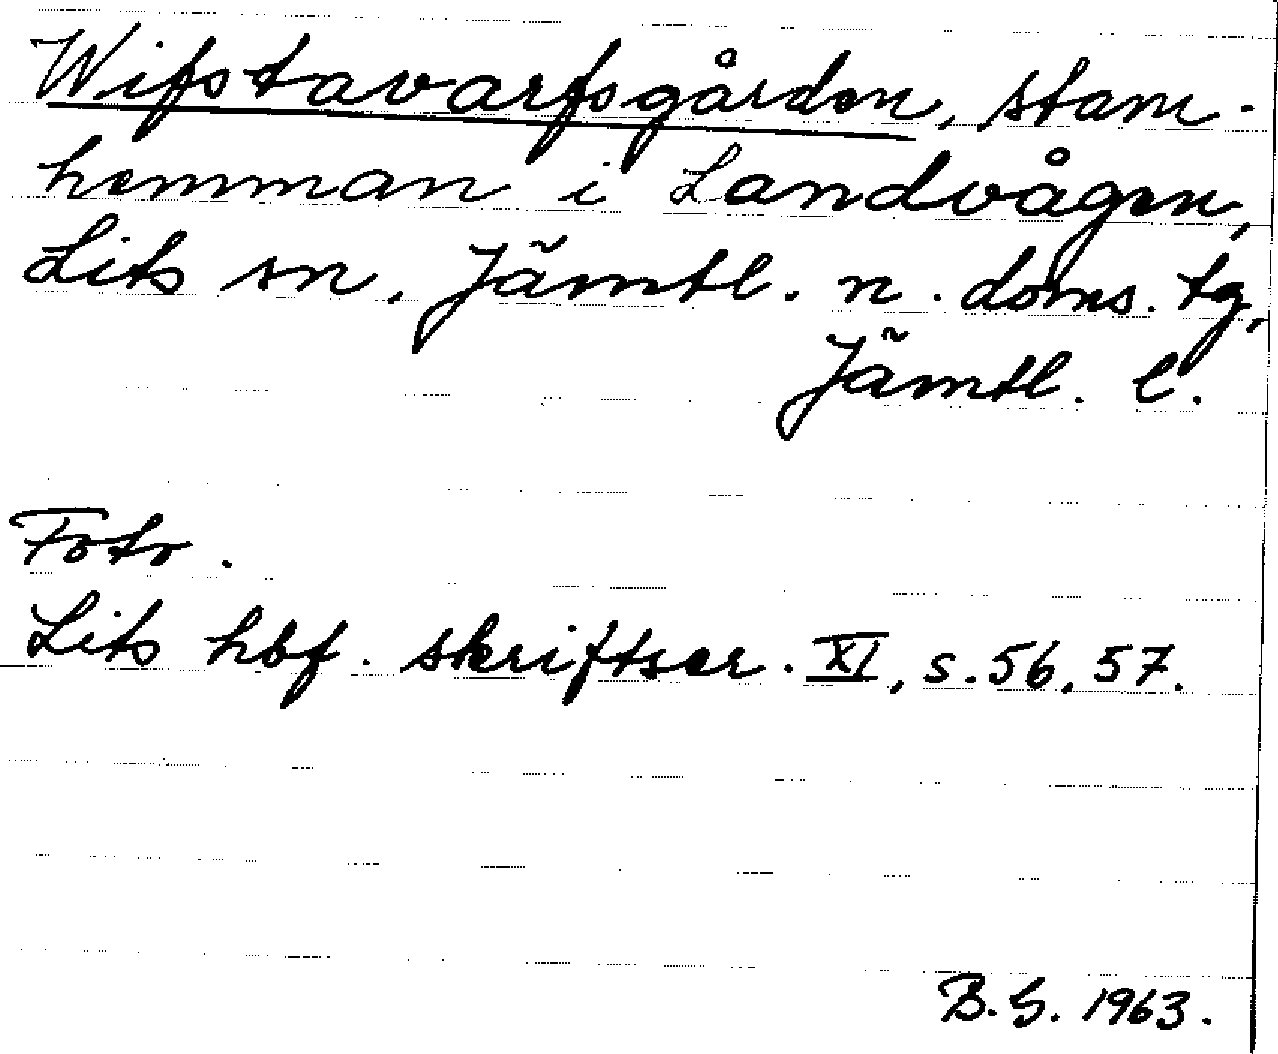 Wifstavarfsgården, stam-
hemman i Landvågen,
Lits sn. Jämtl. n. doms. tg,
Jämtl. l.
Foto.
Lits hbf. skriftser. XI, s. 56, 57.
B.G. 1963.